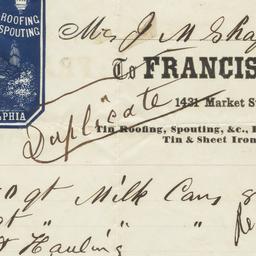 ROOFING
SPOUTING
PHIA
Mrs J M Sha
To FRANCIS
1421 Market S
Duplicate
Tin Roofing, Spouting, &c.,
Tin & Sheet Iron
0 qt Milk Cans
qt " " "
Hauling